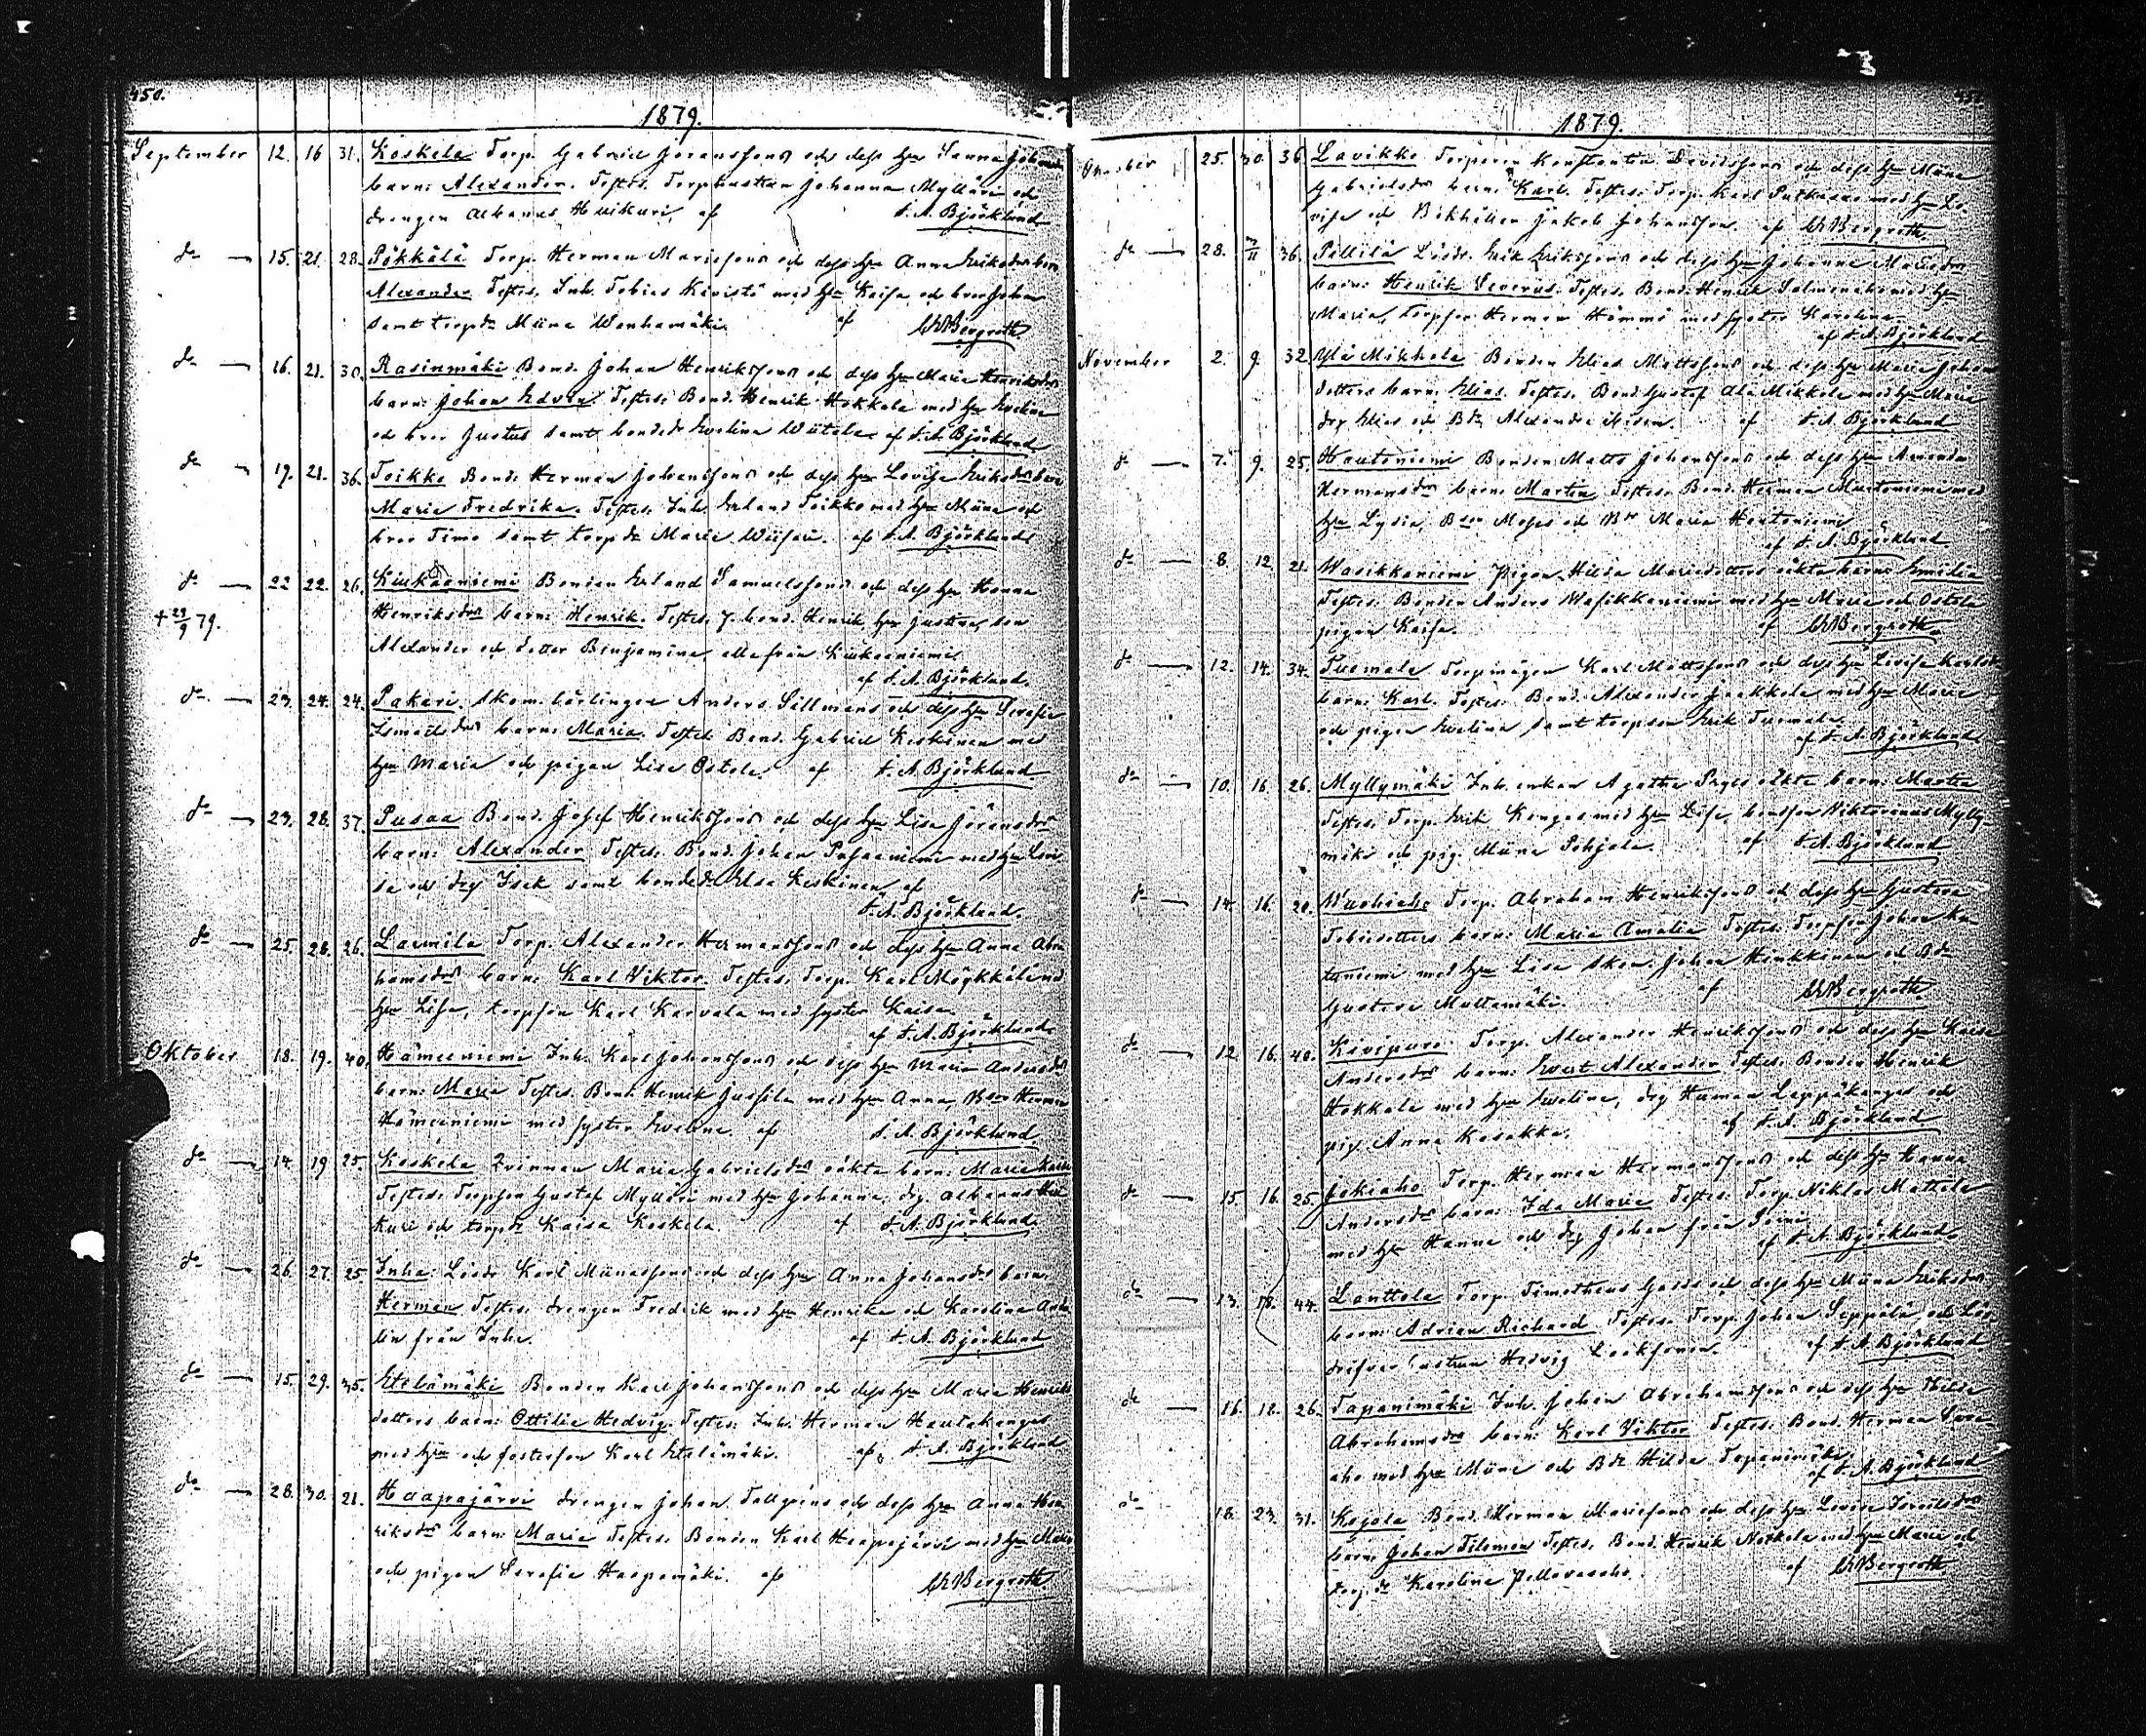 450.
1879.
September 12. 16 31. Koskela Torp. Gabriel Göranssons och dess hu Sanna Johans
barn: Alexander. Testes. Torphustrun Johanna Mylläri och
drengen Albanus Huikuri, af F. A. Björklund
do 15. 21. 28. Pökkälä Torp. Herman Mariesons och dess hu Anna Eriksdrs barn
Alexander Testes. Inh. Tobias Kivistö med hu Kaisa och bror Johan
samt torpdr Miina Wanhamäki. af Bergroth
do 16. 21. 30. Rasinmäki Bond. Johan Henrikssons och dess hu Maria Henriksdrs
barn: Johan Edvin. Testes: Bond. Henrik Hokkala med hu Evelina
och bror Justus samt bondedr Evelina Wiitala. af F. A. Björklund
do 17. 21. 36. Toikko Bond. Herman Johanssons och dess hu Lovisa Eriksdrs barn
Maria Fredrika. Testes. Inh. Erland Toikko med hu Miina och
bror Timo samt torpdr Maria af F. A. Björklund
do 22 22. 26. Kiukaaniemi Bonden Erland Samuelssons och dess hu Hanna
+ 29/9 79. Henriksdrs barn: Henrik. Testes. f. bond. Henrik, hu Justina, son
Alexander och dotter Benjamina, alla från Kiukaaniemi.
af F. A. Björklund.
do 23. 24. 24. Pakari. skom. lärlingen Anders Sillmans och dess hu Serafia
Ismaelsdrs barn: Maria. Testes Bond. Gabriel Keskinen med
hu Maria och pigan Lisa Ostola. af F. A. Björklund
do 23. 28. 37. Pusaa Bond. Josef Henrikssons och dess hu Lisa Göransdrs
barn: Alexander Testes. Bond. Johan Pusaaniemi med hu Lovi-
sa och drg Isak samt bondedr Elsa Keskinen af
F. A. Björklund.
do 25. 28. 26. Larmila Torp. Alexander Hermanssons och dess hu Anna Abra
hamsdrs barn. Karl Viktor. Testes. Torp. Karl Möykkälä med
hu Lisa, torpson Karl Karvala med syster Kaisa.
af F. A. Björklund.
Oktober 18. 19. 40. Hämeeniemi Inh. Karl Johanssons och dess hu Maria Andersdrs
barn: Maria Testes. Bond. Henrik Jussila med hu Anna, Bson Herman
Hämeeniemi med syster Evelina. af F. A. Björklund
do 14. 19 25. Koskela Qvinnan Maria Gabrielsdrs oäkta barn: Maria
Testes: Torpson Gustaf Mylläri med hu Johanna, drg. Albanus Hui
kuri och torpdr Kaisa Koskela. af F. A. Björklund.
do 26. 27. 25. Inha: Lösdr Karl Miinassons och dess hu Anna Johansdrs barn:
Herman Testes. drengen Fredrik med hu Henrika och Karolina
lin från Inha. af F. A. Björklund
do 15. 29. 35. Etelämäki Bonden Karl Johanssons och dess hu Maria Henriks
dotters barn: Ottilia Hedvig. Testes: Inh. Herman Hautakangas
med hu och fosterson Karl Etelämäki. af F. A. Björklund
do 28. 30. 21. Haapajärvi drengen Johan och dess hu Anna Hen
riksdrs barn: Maria Testes. Bonden Karl Haapajärvi med hu Maria
och pigan Serafia Haapamäki. af Bergroth
1879.
Oktober 25. 30. 36 Lavikko Torparen Konstantin Davidssons och dess hu Miina
Gabrielsdrs barn: Karl. Testes: Torp. Karl med hu Lo-
visa och Jakob Johansson. af Bergroth.
do 28. 36. Pellilä Lösdr. Erik Erikssons och dess hu Johanna Mariedrs
barn: Henrik Severus. Testes. Bond. Henrik med hu
Maria, torpson Herman Hömmö med syster Karolina.
af F. A. Björklund
November 2. 9. 32 Yli Mikkola Bonden Elias Mattssons och dess hu Maria Johans
dotters barn: Elias. Testes. Bond. Gustaf Ala Mikkola med hu Maria
drg Elias och Bdr Alexandra af F. A. Björklund
do 7. 9. 25. Hautoniemi Bonden Matts Johanssons och dess hu Amanda
Hermansdrs barn: Martin Testes. Bond. Herman med
hu Lydia, Bson Moses och Bdr Maria Hautoniemi
af F. A. Björklund.
do 8 12. 21. Wasikkaniemi Pigan Hilda Mariedotters oäkta barn: Emilia
Testes: Bonden Anders Wasikkaniemi med hu Maria och Ostola
pigan Kaisa. af Bergroth
do 12. 14. 34. Tuomala Torpmågen Karl Mattssons och dess hu Lovisa Karlsdr
barn: Karl. Testes. Bond. Alexander Jaakkola med hu Maria
och pigan Evelina samt torpson Erik Tuomala.
af F. A. Björklund
do 10. 16. 26. Myllymäki Inh. enkan Agatha oäkta barn: Martta
Testes. Torp. Erik Kangas med hu Lisa, bondson Viktorinus Mylly-
mäki och pig. Miina Pohjola. af F. A. Björklund
do 14. 16. 20. Torp. Abraham Henrikssons och dess hu Gustava
Tobiedotters barn: Maria Amalia Testes: Torpson Johan
taniemi med hu Lisa skom. Johan Hinkkinen och Bdr
Gustava Multamäki. af Bergroth
do 12 16. 40. Kivipuro. Torp. Alexander Henrikssons och dess hu Kaisa
Andersdrs barn: Evert Alexander. Testes. Bonden Henrik
Hokkala med hu Evelina, drg Herman Leppäkangas och
pig. Anna Kasakka. af F. A. Björklund
do 15. 16. 25. Jokiaho Torp. Herman Hermanssons och dess hu Hanna
Andersdrs barn: Ida Maria Testes. Torp. Niklas Mattola
med hu Hanna och drg Johan från
af F. A. Björklund.
do 13. 18. 44. Lanttola Torp. Timotheus och dess hu Miina Eriksdrs
barn: Adrian Richard. Testes. Torp. Johan Seppälä och Lös-
drifver hustrun Hedvig af F. A. Björklund
do 16. 18. 26. Tapanimäki Inh. Johan Abrahamssons och dess hu Hilda
Abrahamsdrs barn: Karl Viktor Testes. Bond. Herman
aho med hu Miina och Bdr Hilda Tapanimäki
af F. A. Björklund
do 18. 23. 31. Kojola Bond. Herman Mariesons och dess hu Lovisa
barn: Johan Filemon Testes. Bond. Henrik med hu Maria och
torp. dr Karolina Pellavasaho. af Bergroth